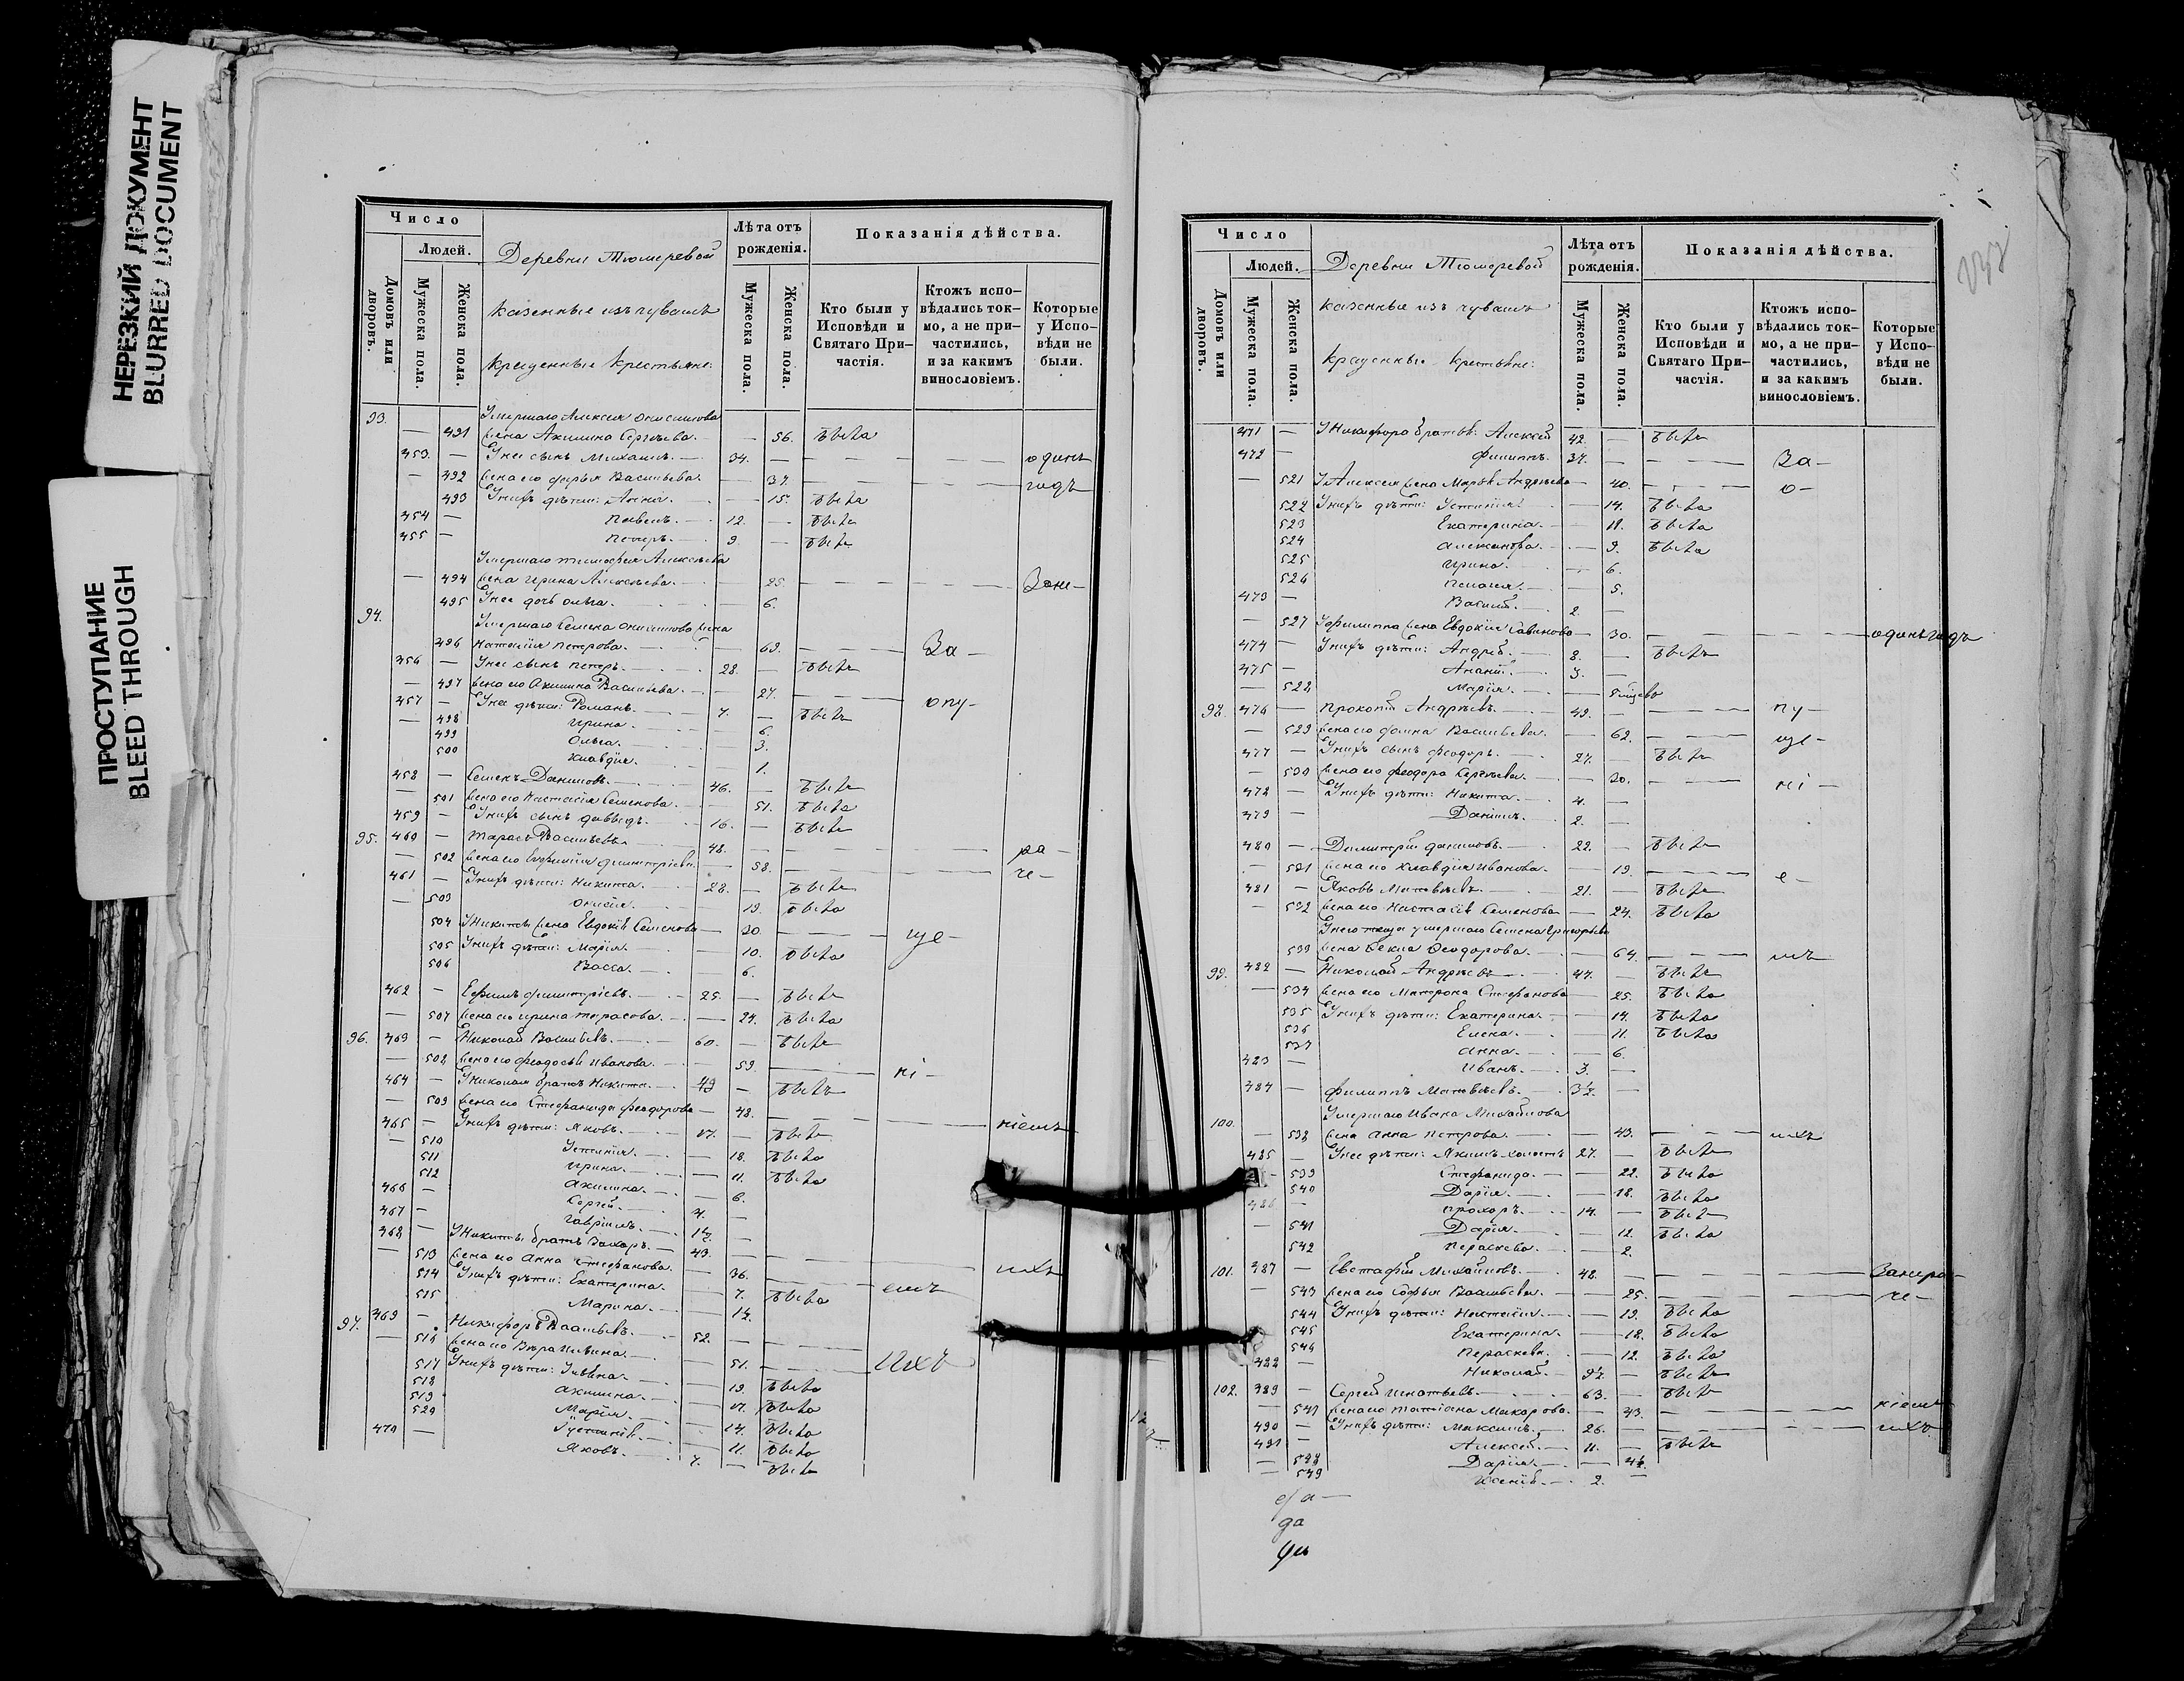 НЕРЕЗКИЙ ДОКУМЕНТ
BLURRED DOCUMENT
ПРОСТУПАНИЕ
BLEED THROUGH
Число
Людей.
Домовъ или дворовъ.
Мужеска пола.
Женска пола.
Деревни Тюмеревой
казенные изъ чувашъ
крещенные крестьяне:
Лѣта отъ рожденія.
Мужеска пола.
Женска пола.
Показанія дѣйства.
Кто были у Исповѣди и Святаго Причастія.
Ктожъ исповѣдались токмо, а не причастились, и за какимъ винословіемъ.
Которые у Исповѣди не были.
93. Умершаго Алексея Онисимова
491 жена Акилина Сергѣева. 56. была
453. У нея сынъ Михаилъ. 34. одинъ
492 жена его Дарья Васильева. 37. годъ
493 У нихъ дѣти: Анна. 15. была
454 Павелъ. 12. былъ
455 Петръ. 9. былъ
Умершаго Тимофея Алексѣева
494 жена Ирина Алексѣева. 25.
495 У нея дочь Ольга. 6.
94. Умершаго жена
496 Петрова. 69. За-
456 У нея сынъ Петръ. 28. былъ
497 жена его Акилина Васильева. 27. опу-
457 У нея дѣти: Романъ. 7. былъ
498 Ирина. 6.
499 Ольга. 3.
500 Клавдія. 1.
458 Семенъ Даниловъ. 46. былъ
501 жена его Настасія Семенова. 51. была
459 У нихъ сынъ Давыдъ. 16. былъ
95. 460 Тарасъ Васильевъ. 48. ра-
502 жена его Евфимія Димитріева. 58. че-
461 У нихъ дѣти: Никита. 28. былъ
503 19. была
504 У Никиты жена Евдокія Семенова 30. ще-
505 У нихъ дѣти: Марія. 10. была
506 Васса. 6.
462 Ефимъ Димитріевъ. 25. былъ
507 жена его Ирина Тарасова. 24. была
96. 463 Николай Васильевъ. 60. былъ
508 жена его Феодосья Иванова. 59. ні-
464 У Николая братъ Никита. 49 былъ
509 жена его Стефанида Феодорова 48. ніемъ
465 У нихъ дѣти: Яковъ. 17. былъ
510 Устинія. 18. была
511 Ирина. 11. была
512 Акилина. 6.
466 Сергѣй. 4.
467 Гавріилъ. 1½.
468 У Никиты братъ Захаръ. 43.
513 жена его Анна Стефанова. 36. ихъ
514 У нихъ дѣти: Екатерина. 7. была емъ
515 Марина. 1½.
97. 469 Никифоръ Васильевъ. 52.
516 жена его Вѣра Ильина. 51. ихъ
517 У нихъ дѣти: Ульяна. 19. была
518 Акилина. 17. была
519 Марія. 14. была
520 Іустинія. 11. была
470 Яковъ. 7. былъ
Число
Людей.
Домовъ или дворовъ.
Мужеска пола.
Женска пола.
Деревни Тюмеревой
казенные изъ чувашъ
крещенные крестьяне:
Лѣта отъ рожденія.
Мужеска пола.
Женска пола.
Показанія дѣйства.
Кто были у Исповѣди и Святаго Причастія.
Ктожъ исповѣдались токмо, а не причастились, и за какимъ винословіемъ.
Которые у Исповѣди не были.
471 У Никифора братья: Алексей 42. былъ
472 Филиппъ. 37. За-
521 У Алексея жена Марѳа Андреева 40. о-
522 У нихъ дѣти: Устинія. 14. была
523 Екатерина. 11. была
524 Александра. 9. была
525 Ирина. 6.
526 Пелагея. 5.
473 Василій. 2.
527 У Филиппа жена Евдокія Савинова 30. одинъ годъ
474 У нихъ дѣти: Андрей. 8. былъ
475 Ананій. 3.
528 Марія. 5 мѣсяцевъ
98. 476 Прокопій Андреевъ. 49. пу-
529 жена его Фаина Васильева. 62. ще-
477 У нихъ сынъ Феодоръ. 27. былъ
530 жена его Феодора Сергѣева. 30. ні-
478 У нихъ дѣти: Никита. 4.
479 Даніилъ. 2.
480 Димитрій Даниловъ. 22. былъ
531 жена его Клавдія Иванова. 19. е-
481 Яковъ Матвѣевъ. 21. былъ
532 жена его Настасія Семенова 24. была
У него теща умершаго Семена Григорьева
533 жена Ѳекла Ѳеодорова. 64. мъ
99. 482 Николай Андреевъ 47. былъ
534 жена его Матрона Стефанова 25. была
535 У нихъ дѣти: Екатерина. 14. была
536 Елена. 11. была
537 Анна. 6.
483 Иванъ. 3.
484 Филиппъ Матвѣевъ. 3½.
100. Умершаго Ивана Михайлова
538 жена Анна Петрова. 43. ихъ
485 У нея дѣти: Якимъ-холостъ 27. былъ
539 Стефанида. 22. была
540 Дарія. 18. была
486 Прохоръ. 14. былъ
541 Дарія. 12. была
542 Пераскева. 2.
101. 487 Евстафій Михайловъ. 48. Занера-
543 жена его Софья Васильева. 25. че-
544 У нихъ дѣти: Настасія. 19. была
545 Екатерина. 18. была
546 Пераскева. 12. была
488 Николай. 9½. былъ
102. 489 Сергей Игнатьевъ. 63. былъ
547 жена его Татіана Макарова. 43. ніемъ
490 У нихъ дѣти: Максимъ. 26. ихъ
491 Алексей. 11. былъ
548 Дарія. 4½.
549 Ксенія. 2.
да